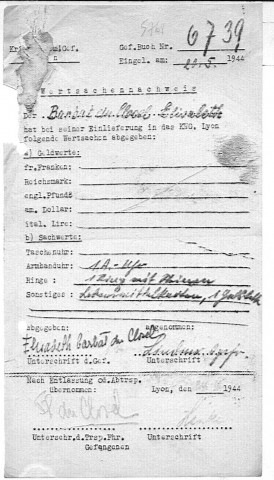 5761
Gef.Buch Nr. 6739
Eingel. am: 29.5. 1944
Wertsachennachweis
Der Barbat du Closel Elisabeth
hat bei seiner Einlieferung in das KWG. Lyon
folgende Wertsachen abgegeben:
a) Geldwerte:
fr.Franken:
Reichsmark:
engl.Pfund:
am. Dollar:
ital. Lire:
b) Sachwerte:
Taschenuhr:
Armbanduhr: 1 A.-Uhr
Ringe : 1 Ring mit Steinen
Sonstiges : Lebensmittelkarten, 1
Abgegeben: Abgenommen:
Elisabeth Barbat du Closel
Unterschrift d.Gef. Unterschrift
Nach Entlassung od.Abtrsp.
übernommen: Lyon, 1944
du Closel
Unterschr.d.Trsp.Fhr. Unterschrift
Gefangenen